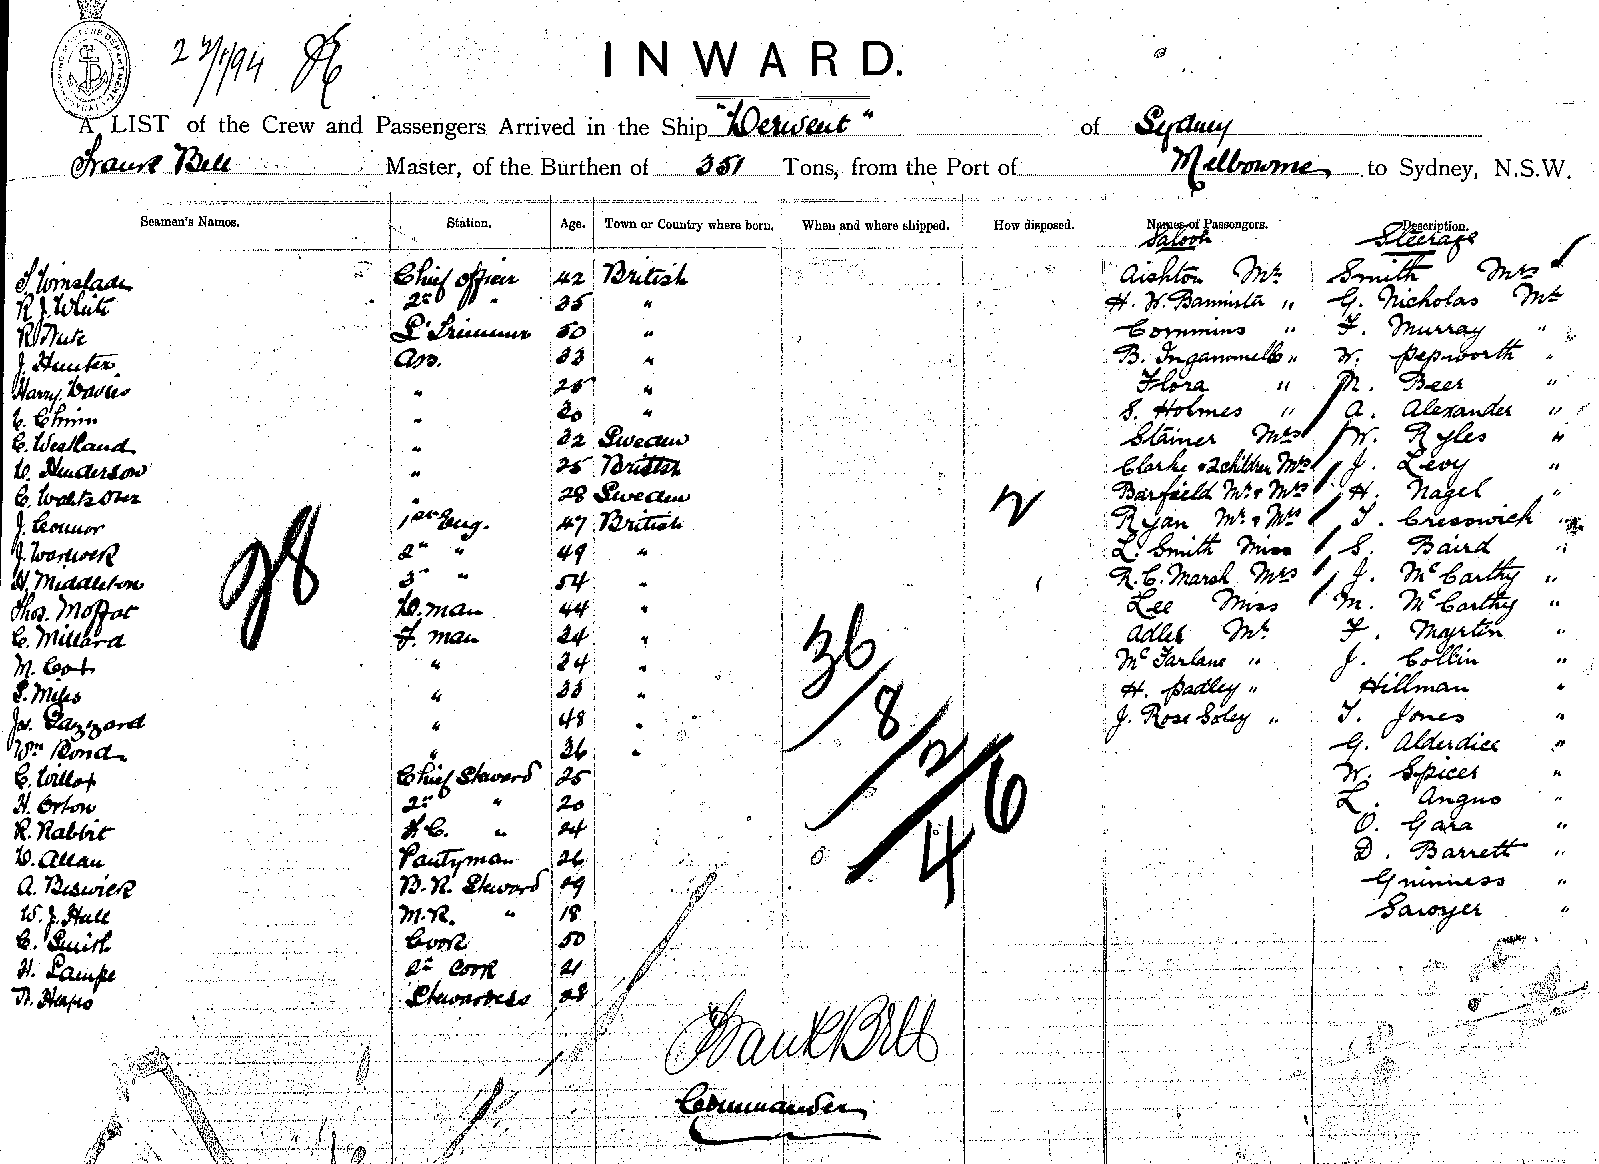 22/1/94
INWARD.
A LIST of the Crew and Passengers Arrived in the Ship "Derwent" of Sydney
Frank Bell Master, of the Burthen of 351 Tons, from the Port of Melbourne to Sydney, N.S.W.
Seamen's Names. Station. Age. Town or Country where born. When and where shipped. How disposed. Names of Passengers. Description.
Saloon Steerage
S. Winslade Chief officer 42 British Aishton Mr Smith Mrs
R. J. White 2nd " 35 " H. W. Bannister " G. Nicholas Mr
R. Nute L. Trimmer 50 " Commins " F. Murray "
J. Hunter A.B. 33 " B. Ingammells " W. Pepworth "
Harry Davies " 25 " Flora " R. Beer "
E. Chinn " 30 " S. Holmes " A. Alexander "
C. Westland " 32 Sweden Stainer Mrs W. Ryles "
D. Henderson " 25 British Clarke & 2 children Mrs J. Levy "
C. " 28 Sweden Barfield Mr & Mrs H. Nagel "
J. Connor 1st Eng. 47 British Ryan Mr & Mrs T. Cresswick "
J. Warwick 2nd " 49 " L. Smith Miss S. Baird "
H. Middleton 3rd " 54 " R. C. Marsh Mrs J. McCarthy "
Thos. Moffat D. man 44 " Lee Miss M. McCarthy "
C. Millard F. man 24 " Adler Mr F. Martin "
M. Cox " 24 " McFarlane " J. Collin "
S. Miles " 33 " H. Padley " Hillman "
Jas. Gazzard " 48 " J. Rose Soley " T. Jones "
Wm Bond " 36 " G. Alderdice "
C. Willox Chief Steward 25 W. Spicer "
H. Orton 2nd " 20 L. Angus "
R. Rabbit F.C. " 24 O. Gara "
D. Allan Pantryman 26 D. Barrett "
A. Beswick B.R. Steward 19 Guinness "
W. J. Hall M.R. " 18 Sawyer "
C. Smith Cook 50
H. Lampe 2nd Cook 21
Heaps Stewardess 28
28
2
36/8/2/46
Frank Bell
Commander